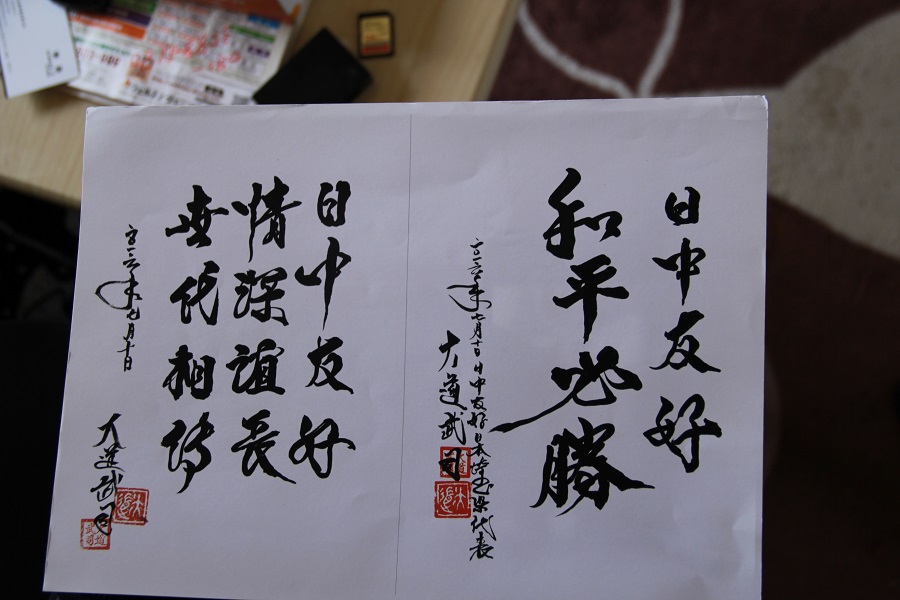 日中友好
和平必勝
二〇一六年七月十日日中友好日本
代表
大道武司
日中友好
情深誼長
世代相傳
二〇一六年七月十日
大道武司